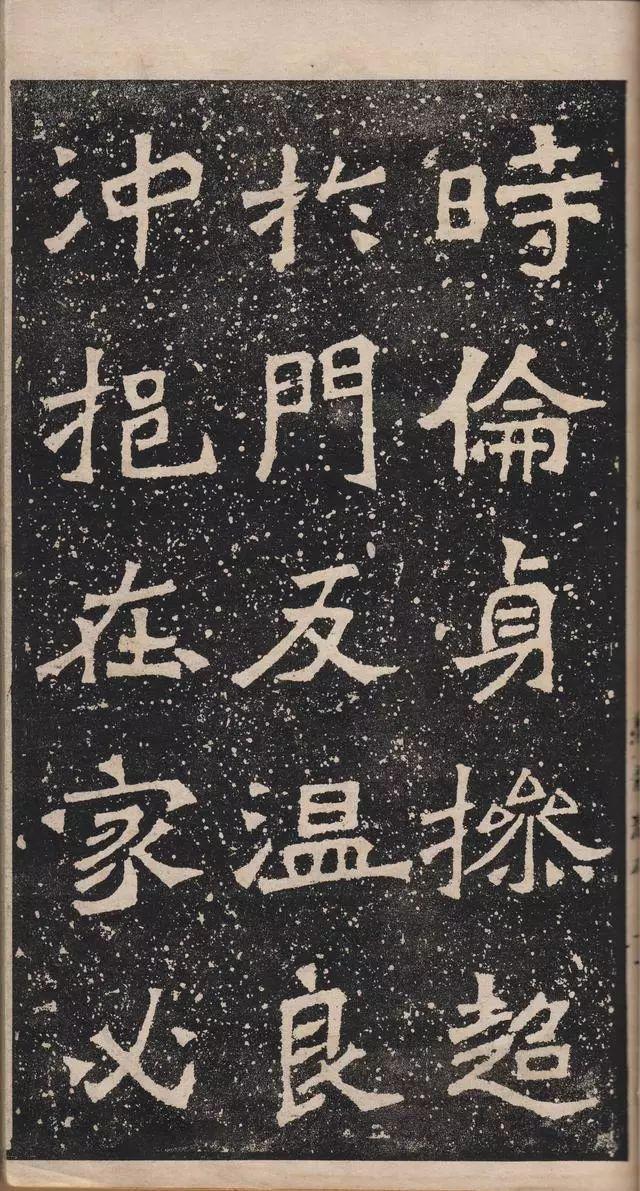 時倫貞操超
於門友温良
沖挹在家必